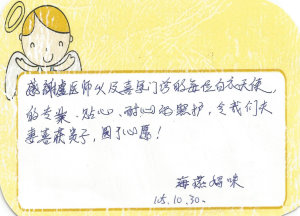 感謝盧医师以及喜孕门诊的每位白衣天使,
的专業、贴心、耐心的照护,令我们夫
妻喜获贵子,圆了心愿!
海燕妈咪
105.10.30.